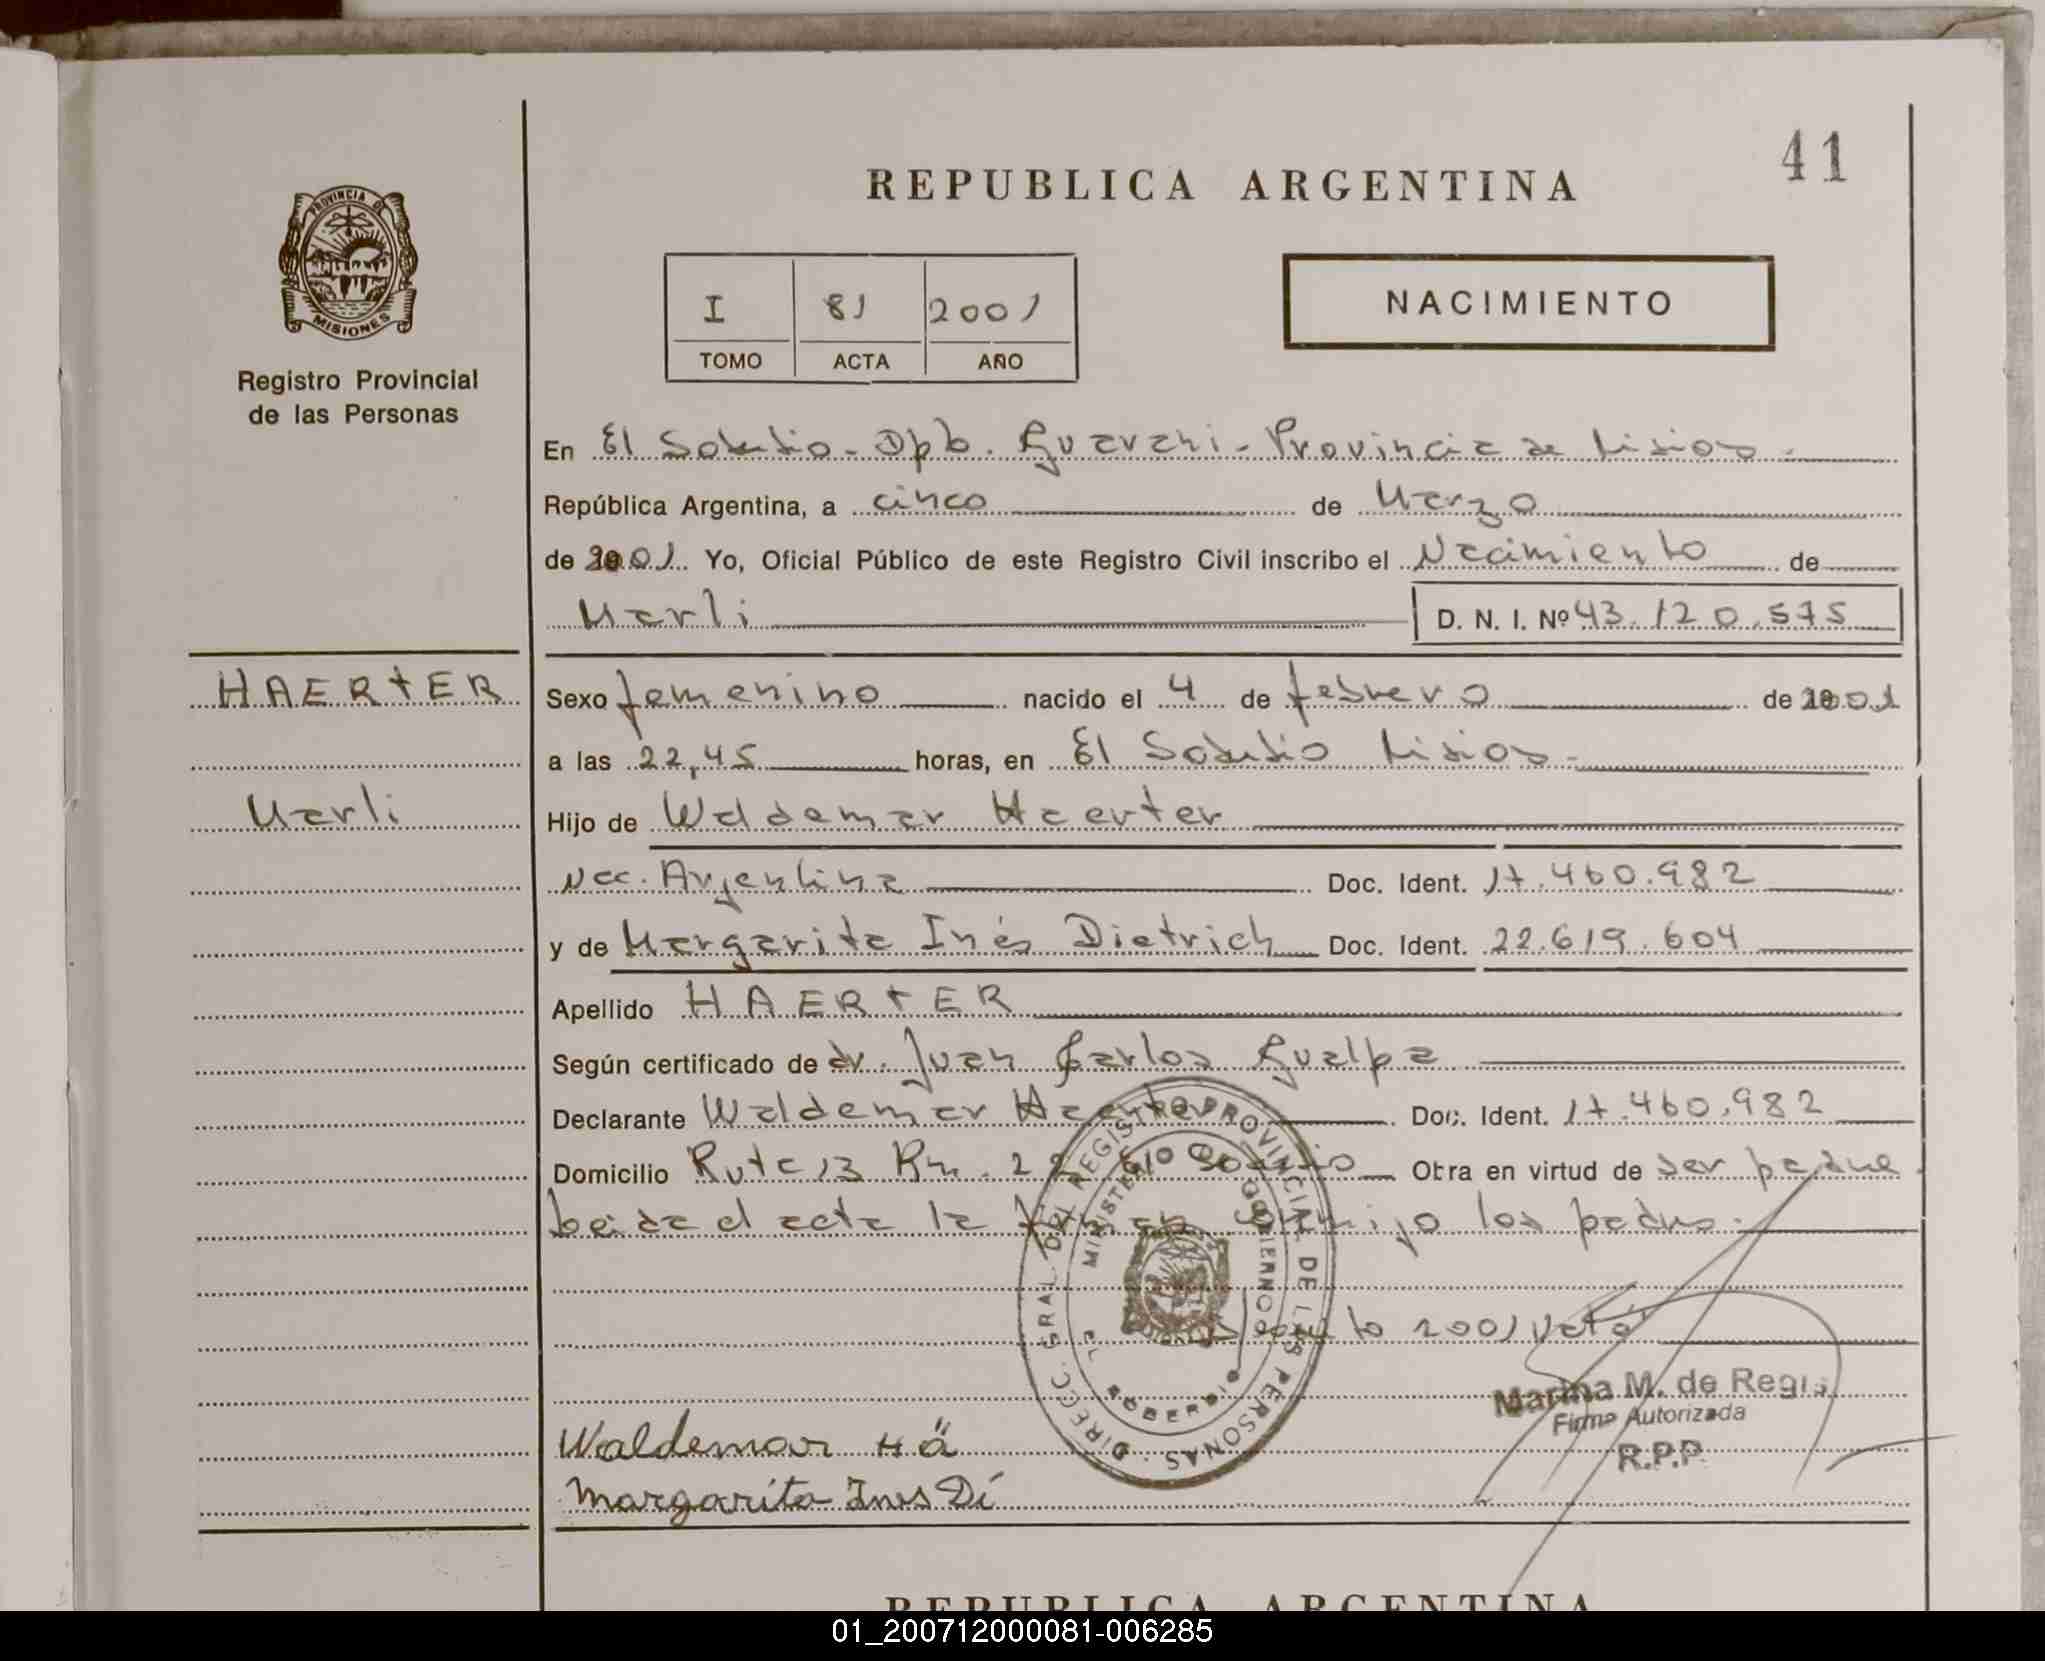 41
REPUBLICA ARGENTINA
PROVINCIA DE
MISIONES
Registro Provincial
de las Personas
I 81 2001
TOMO ACTA AÑO
NACIMIENTO
En El Soberbio - Dpto. Guarani - Provincia de Misiones -
República Argentina, a cinco de Marzo
de 2001 Yo, Oficial Público de este Registro Civil inscribo el Nacimiento de
Marli D. N. I. Nº 43.120.575
HAERTER
Marli
Sexo femenino nacido el 4 de febrero de 2001
a las 22,45 horas, en El Soberbio Misiones -
Hijo de Waldemar Haerter
Nac. Argentina Doc. Ident. 17.460.982
y de Margarita Inés Dietrich Doc. Ident. 22.619.604
Apellido HAERTER
Según certificado de dr. Juan Carlos Gualpa
Declarante Waldemar Haerter Doc. Ident. 17.460.982
Domicilio Ruta 13 Km. 22 El Soberbio Obra en virtud de ser padre
Leida el acta la firman conmigo los padres.
2001 Vale
DIRECC. GRAL. DEL REGISTRO PROVINCIAL DE LAS PERSONAS
MINISTERIO DE GOBIERNO
EL SOBERBIO
Marina M. de Regis
Firma Autorizada
R.P.P.
Waldemar H ä
Margarita Ines Di
REPUBLICA ARGENTINA
01_200712000081-006285